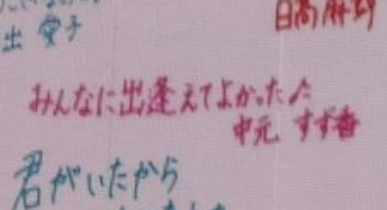 出 安子
日高麻鈴
みんなに出逢えてよかった♪
中元 すず香
君がいたから